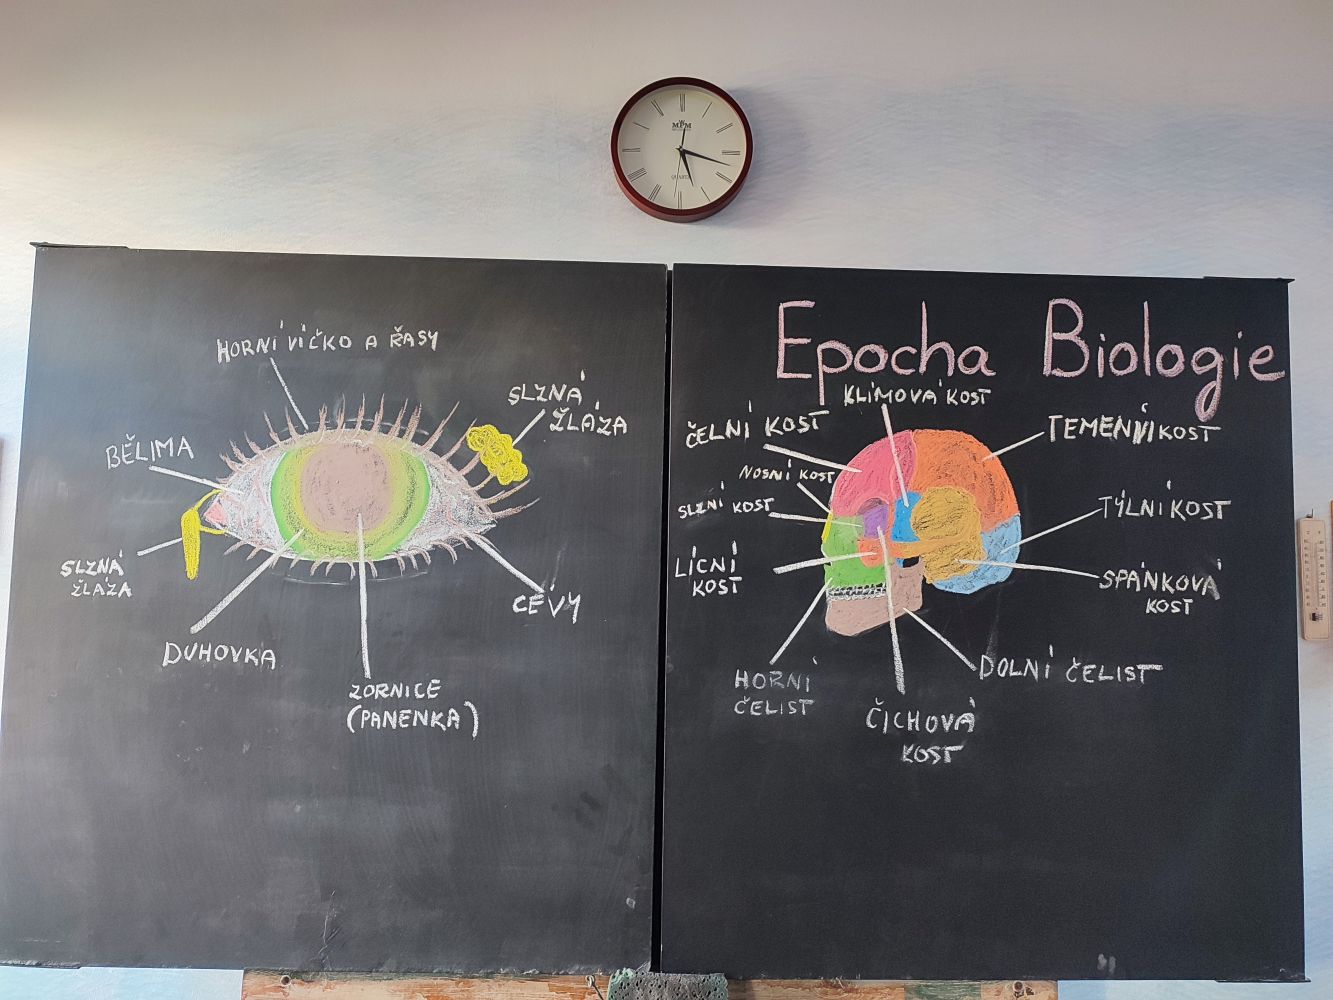 MPM
QUARTZ
HORNÍ VÍČKO A ŘASY
SLZNÁ
ŽLÁZA
BĚLIMA
SLZNÁ
ŽLÁZA
DUHOVKA
CÉVY
ZORNICE
(PANENKA)
Epocha Biologie
KLÍMOVÁ KOST
ČELNÍ KOST
TEMENNÍ KOST
NOSNÍ KOST
SLZNÍ KOST
TÝLNÍ KOST
LÍCNÍ
KOST
SPÁNKOVÁ
KOST
HORNÍ
ČELIST
DOLNÍ ČELIST
ČICHOVÁ
KOST